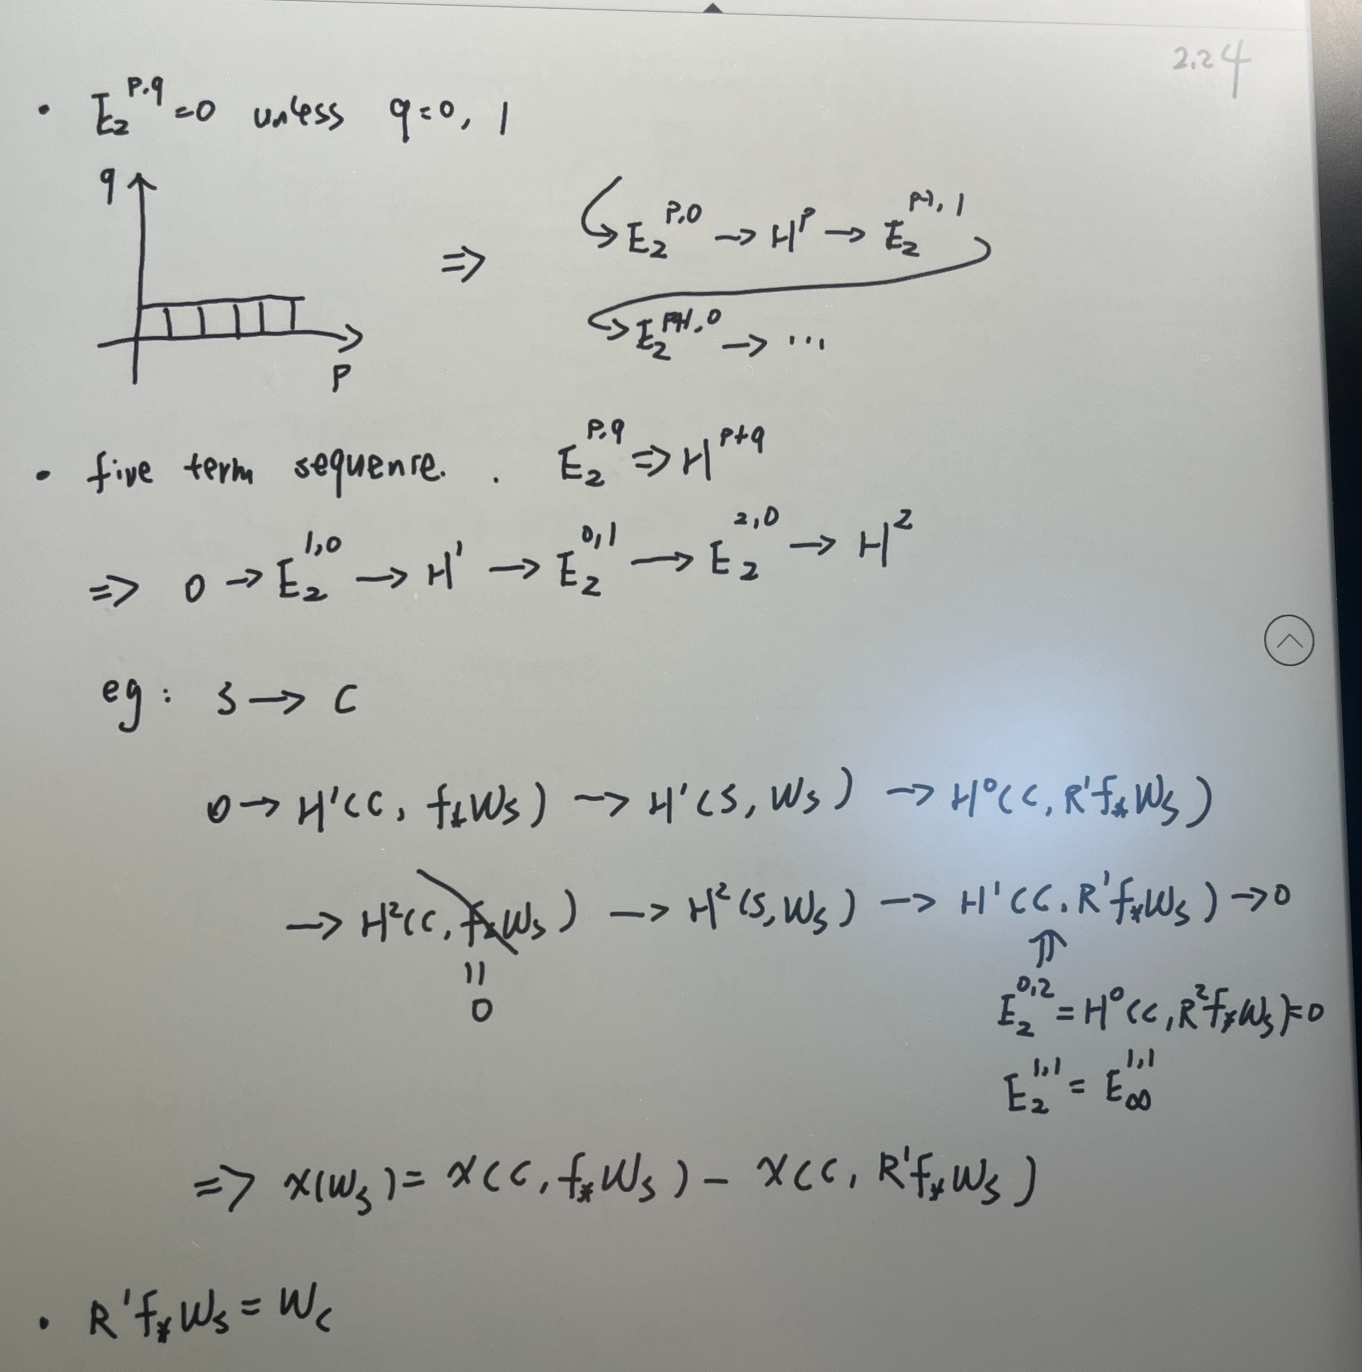 2.24
• E₂^{p,q} = 0 unless q = 0, 1
q
p
⇒ E₂^{p,0} → H^p → E₂^{p-1,1}
→ E₂^{p+1,0} → ...
• five term sequence. . E₂^{p,q} ⇒ H^{p+q}
⇒ 0 → E₂^{1,0} → H^1 → E₂^{0,1} → E₂^{2,0} → H^2
eg: S → C
0 → H^1(C, f_*W_S) → H^1(S, W_S) → H^0(C, R^1f_*W_S)
→ H^2(C, f_*W_S) → H^2(S, W_S) → H^1(C, R^1f_*W_S) → 0
||
0
⇑
E₂^{0,2} = H^0(C, R^2f_*W_S) = 0
E₂^{1,1} = E_∞^{1,1}
⇒ χ(W_S) = χ(C, f_*W_S) - χ(C, R^1f_*W_S)
• R^1f_*W_S = W_C